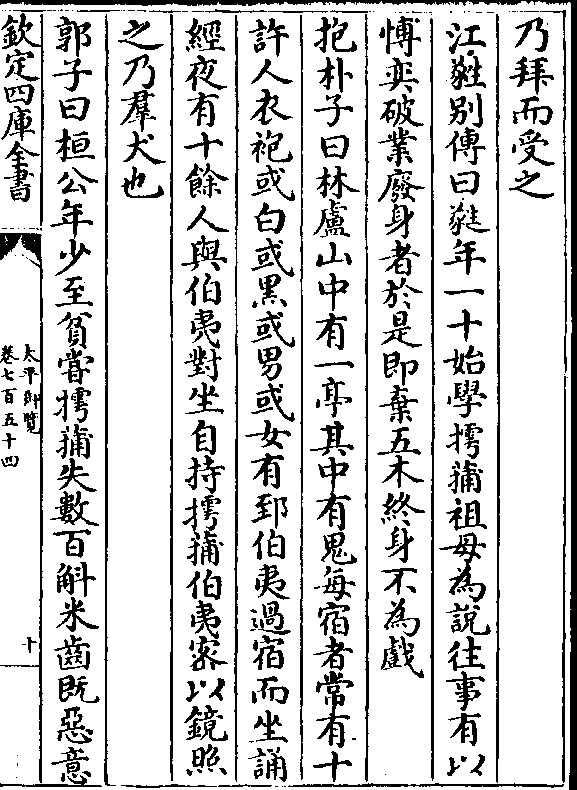 乃拜而受之
江蕤别傳曰蕤年一十始學摴蒱祖母為說往事有以
慱奕破業廢身者於是即棄五木終身不為戲
抱朴子曰林盧山中有一亭其中有鬼每宿者常有十
許人衣袍或白或黑或男或女有郅伯夷過宿而坐誦
經夜有十餘人與伯夷對坐自持摴蒱伯夷宻以鏡照
之乃羣犬也
郭子曰桓公年少至貧嘗摴蒱失數百斛米齒既惡意
欽定四庫全書
太平御覽
卷七百五十四
十